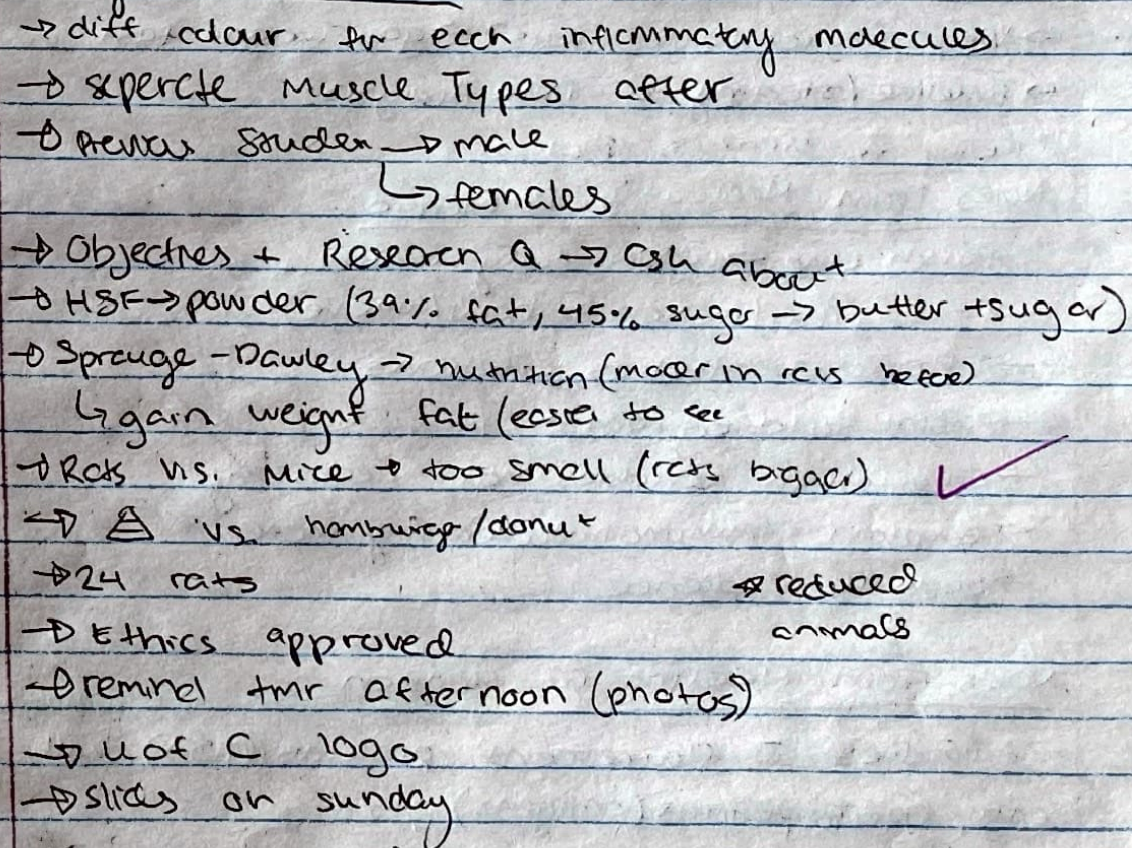 → diff colour for each inflammatory molecules
→ seperate Muscle Types after
→ Previous Studen → male
↳ females
→ Objectives + Research Q → ask about
→ HSF → powder (39% fat, 45% sugar → butter + sugar)
→ Sprauge-Dawley → nutrition (in rats before)
↳ gain weight fat (easier to see
→ Rats vs. Mice → too small (rats bigger)
→ vs. hamburger/donut
→ 24 rats
* reduced
animals
→ Ethics approved
→ remind tmr afternoon (photos)
→ U of C logo
→ slides on sunday